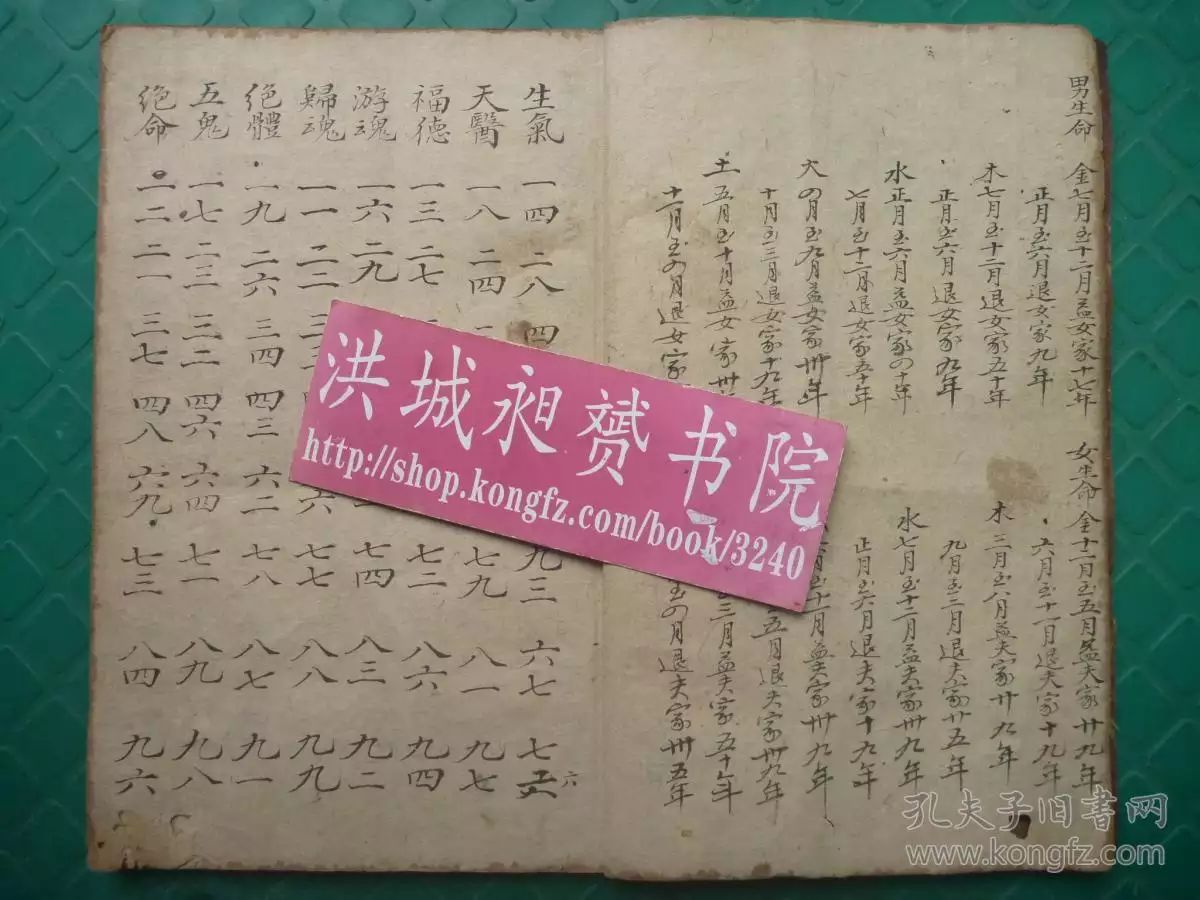 男生命 金七月至十二月益女家十七年 女生命金十二月至五月益夫家卅九年
正月至六月退女家九年 六月至十一月退夫家十九年
木七月至十二月退女家五十年 木三月至八月益夫家卅九年
正月至六月退女家九年 九月至二月退夫家廿五年
水正月至六月益女家四十年 水七月至十二月益夫家卅九年
七月至十二月退女家五十年 正月至六月退夫家十九年
火四月至九月益女家卅年 月至十一月益夫家卅九年
十月至三月退女家十九年 五月退夫家卅九年
土五月至十月益女家卅 三月益夫家五十年
十一月至四月退女家 至四月退夫家卅五年
生氣 一四 二八 四 九三 六七 七六 六
天醫 一八 二四 七九 八一 九七
福德 一三 二七 七二 八六 九四
游魂 一六 二九 七四 八三 九二
歸魂 一一 二二 三 六 七七 八八 九九
絶體 一九 二六 三四 四三 六二 七八 八七 九一
五鬼 一七 二三 三二 四六 六四 七一 八九 九八
絶命 一二 二一 三七 四八 六九 七三 八四 九六
洪城昶赟书院
http://shop.kongfz.com/book/3240
孔夫子旧书网
www.kongfz.com